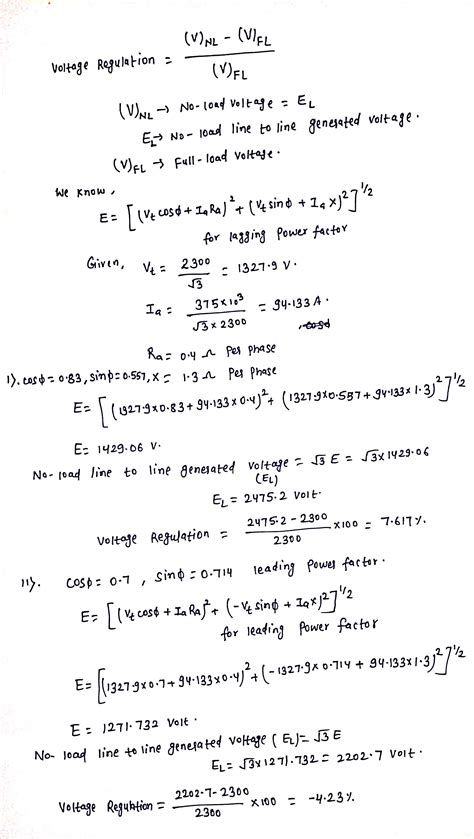 Voltage Regulation = ((V)NL - (V)FL) / (V)FL
(V)NL → No-load voltage = EL
EL→ No-load line to line generated voltage.
(V)FL → Full-load voltage.
We know,
E = [(Vt cosϕ + Ia Ra)^2 + (Vt sinϕ + Ia X)^2]^1/2
for lagging power factor
Given, Vt = 2300/√3 = 1327.9 V.
Ia = 375×10^3 / (√3 × 2300) = 94.133 A.
Ra = 0.4 Ω Per phase
I). cosϕ = 0.83, sinϕ = 0.557, X = 1.3 Ω Per phase
E = [(1327.9×0.83 + 94.133×0.4)^2 + (1327.9×0.557 + 94.133×1.3)^2]^1/2
E = 1429.06 V.
No-load line to line generated voltage = √3 E = √3×1429.06
(EL)
EL = 2475.2 Volt.
Voltage Regulation = (2475.2 - 2300)/2300 ×100 = 7.617%.
II). cosϕ = 0.7, sinϕ = 0.714 leading power factor.
E = [(Vt cosϕ + Ia Ra)^2 + (-Vt sinϕ + Ia X)^2]^1/2
for leading power factor
E = [(1327.9×0.7 + 94.133×0.4)^2 + (-1327.9×0.714 + 94.133×1.3)^2]^1/2
E = 1271.732 Volt.
No-load line to line generated voltage (EL) = √3 E
EL = √3×1271.732 = 2202.7 Volt.
Voltage Regulation = (2202.7 - 2300)/2300 ×100 = -4.23%.